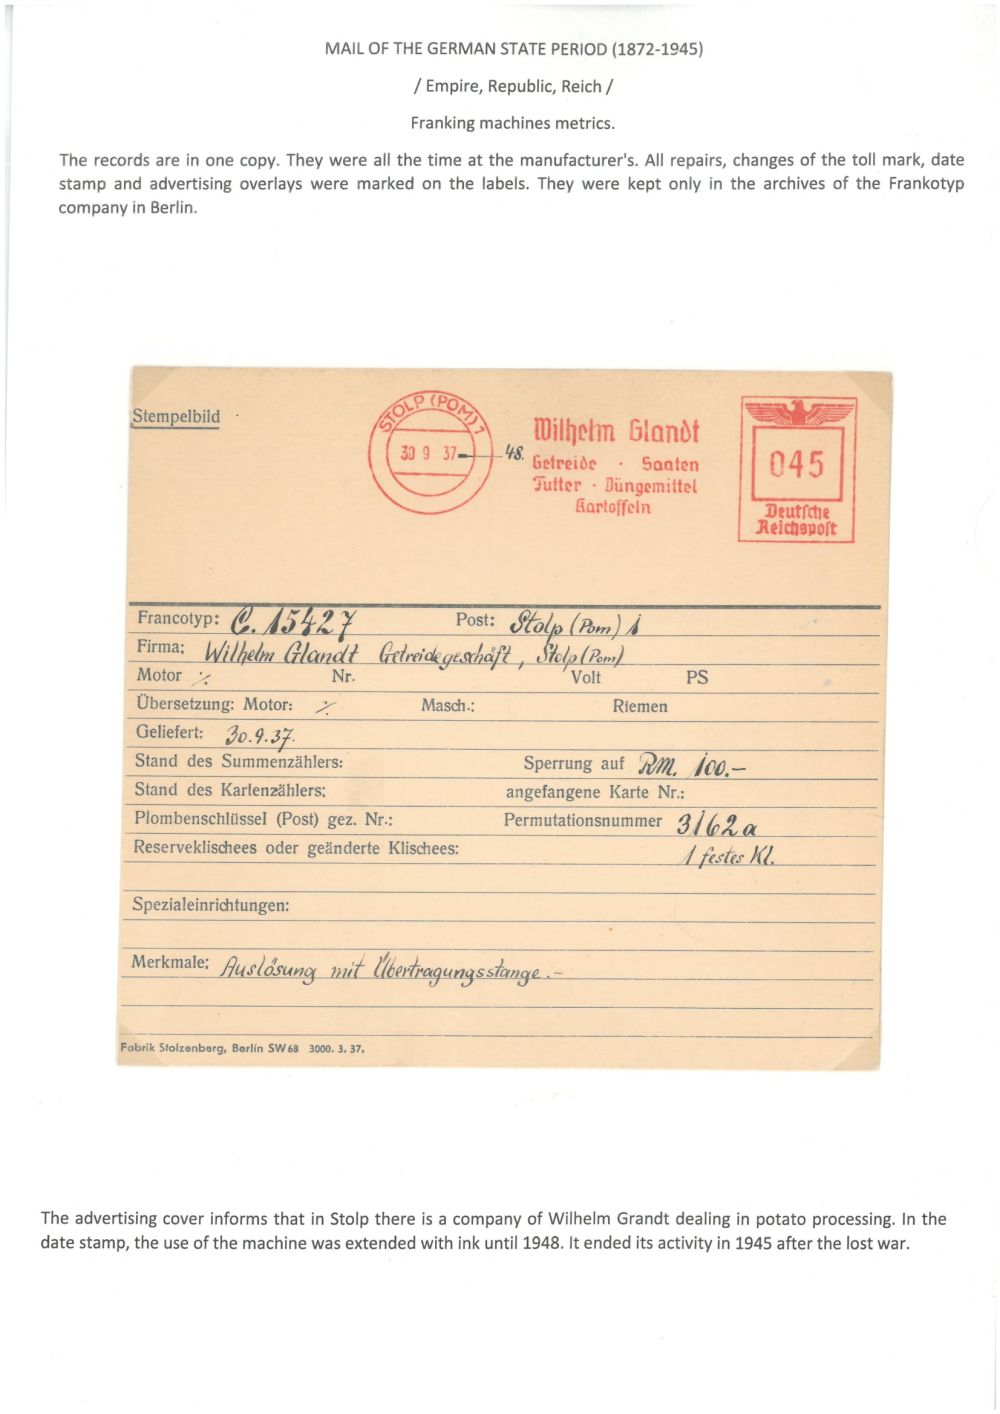 MAIL OF THE GERMAN STATE PERIOD (1872-1945)
/ Empire, Republic, Reich /
Franking machines metrics.
The records are in one copy. They were all the time at the manufacturer's. All repairs, changes of the toll mark, date
stamp and advertising overlays were marked on the labels. They were kept only in the archives of the Frankotyp
company in Berlin.
Stempelbild
STOLP (POM) 1
30 9 37 – 48.
Wilhelm Glandt
Getreide · Saaten
Futter · Düngemittel
Kartoffeln
045
Deutsche
Reichspost
Francotyp: C. 15427 Post: Stolp (Pom) 1
Firma: Wilhelm Glandt Getreidegeschäft, Stolp (Pom)
Motor ·/. Nr. Volt PS
Übersetzung: Motor: ·/. Masch.: Riemen
Geliefert: 30.9.37.
Stand des Summenzählers: Sperrung auf RM. 100.–
Stand des Kartenzählers: angefangene Karte Nr.:
Plombenschlüssel (Post) gez. Nr.: Permutationsnummer 3162a
Reserveklischees oder geänderte Klischees: 1 festes Kl.
Spezialeinrichtungen:
Merkmale: Auslösung mit Übertragungsstange.–
Fabrik Stolzenberg, Berlin SW 68 3000. 3. 37.
The advertising cover informs that in Stolp there is a company of Wilhelm Grandt dealing in potato processing. In the
date stamp, the use of the machine was extended with ink until 1948. It ended its activity in 1945 after the lost war.